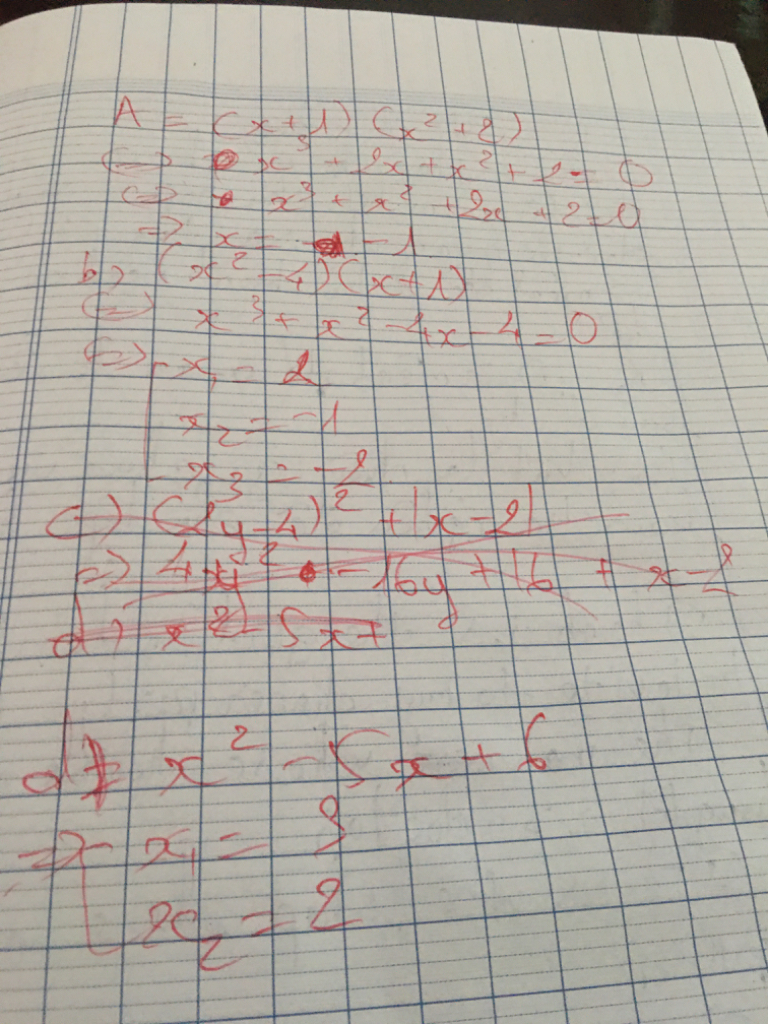 A = (x+1) (x² + 2)
<=> x³ + 2x + x² + 2 = 0
<=> x³ + x² + 2x + 2 = 0
=> x = -1
b, (x² - 4) (x+1)
<=> x³ + x² - 4x - 4 = 0
<=> x₁ = 2
x₂ = -1
x₃ = -2
c) (2y-4)² + |x-2|
=> 4y² - 16y + 16 + x-2
d, x² - 5x+
d, x² - 5x + 6
=> x₁ = 3
x₂ = 2